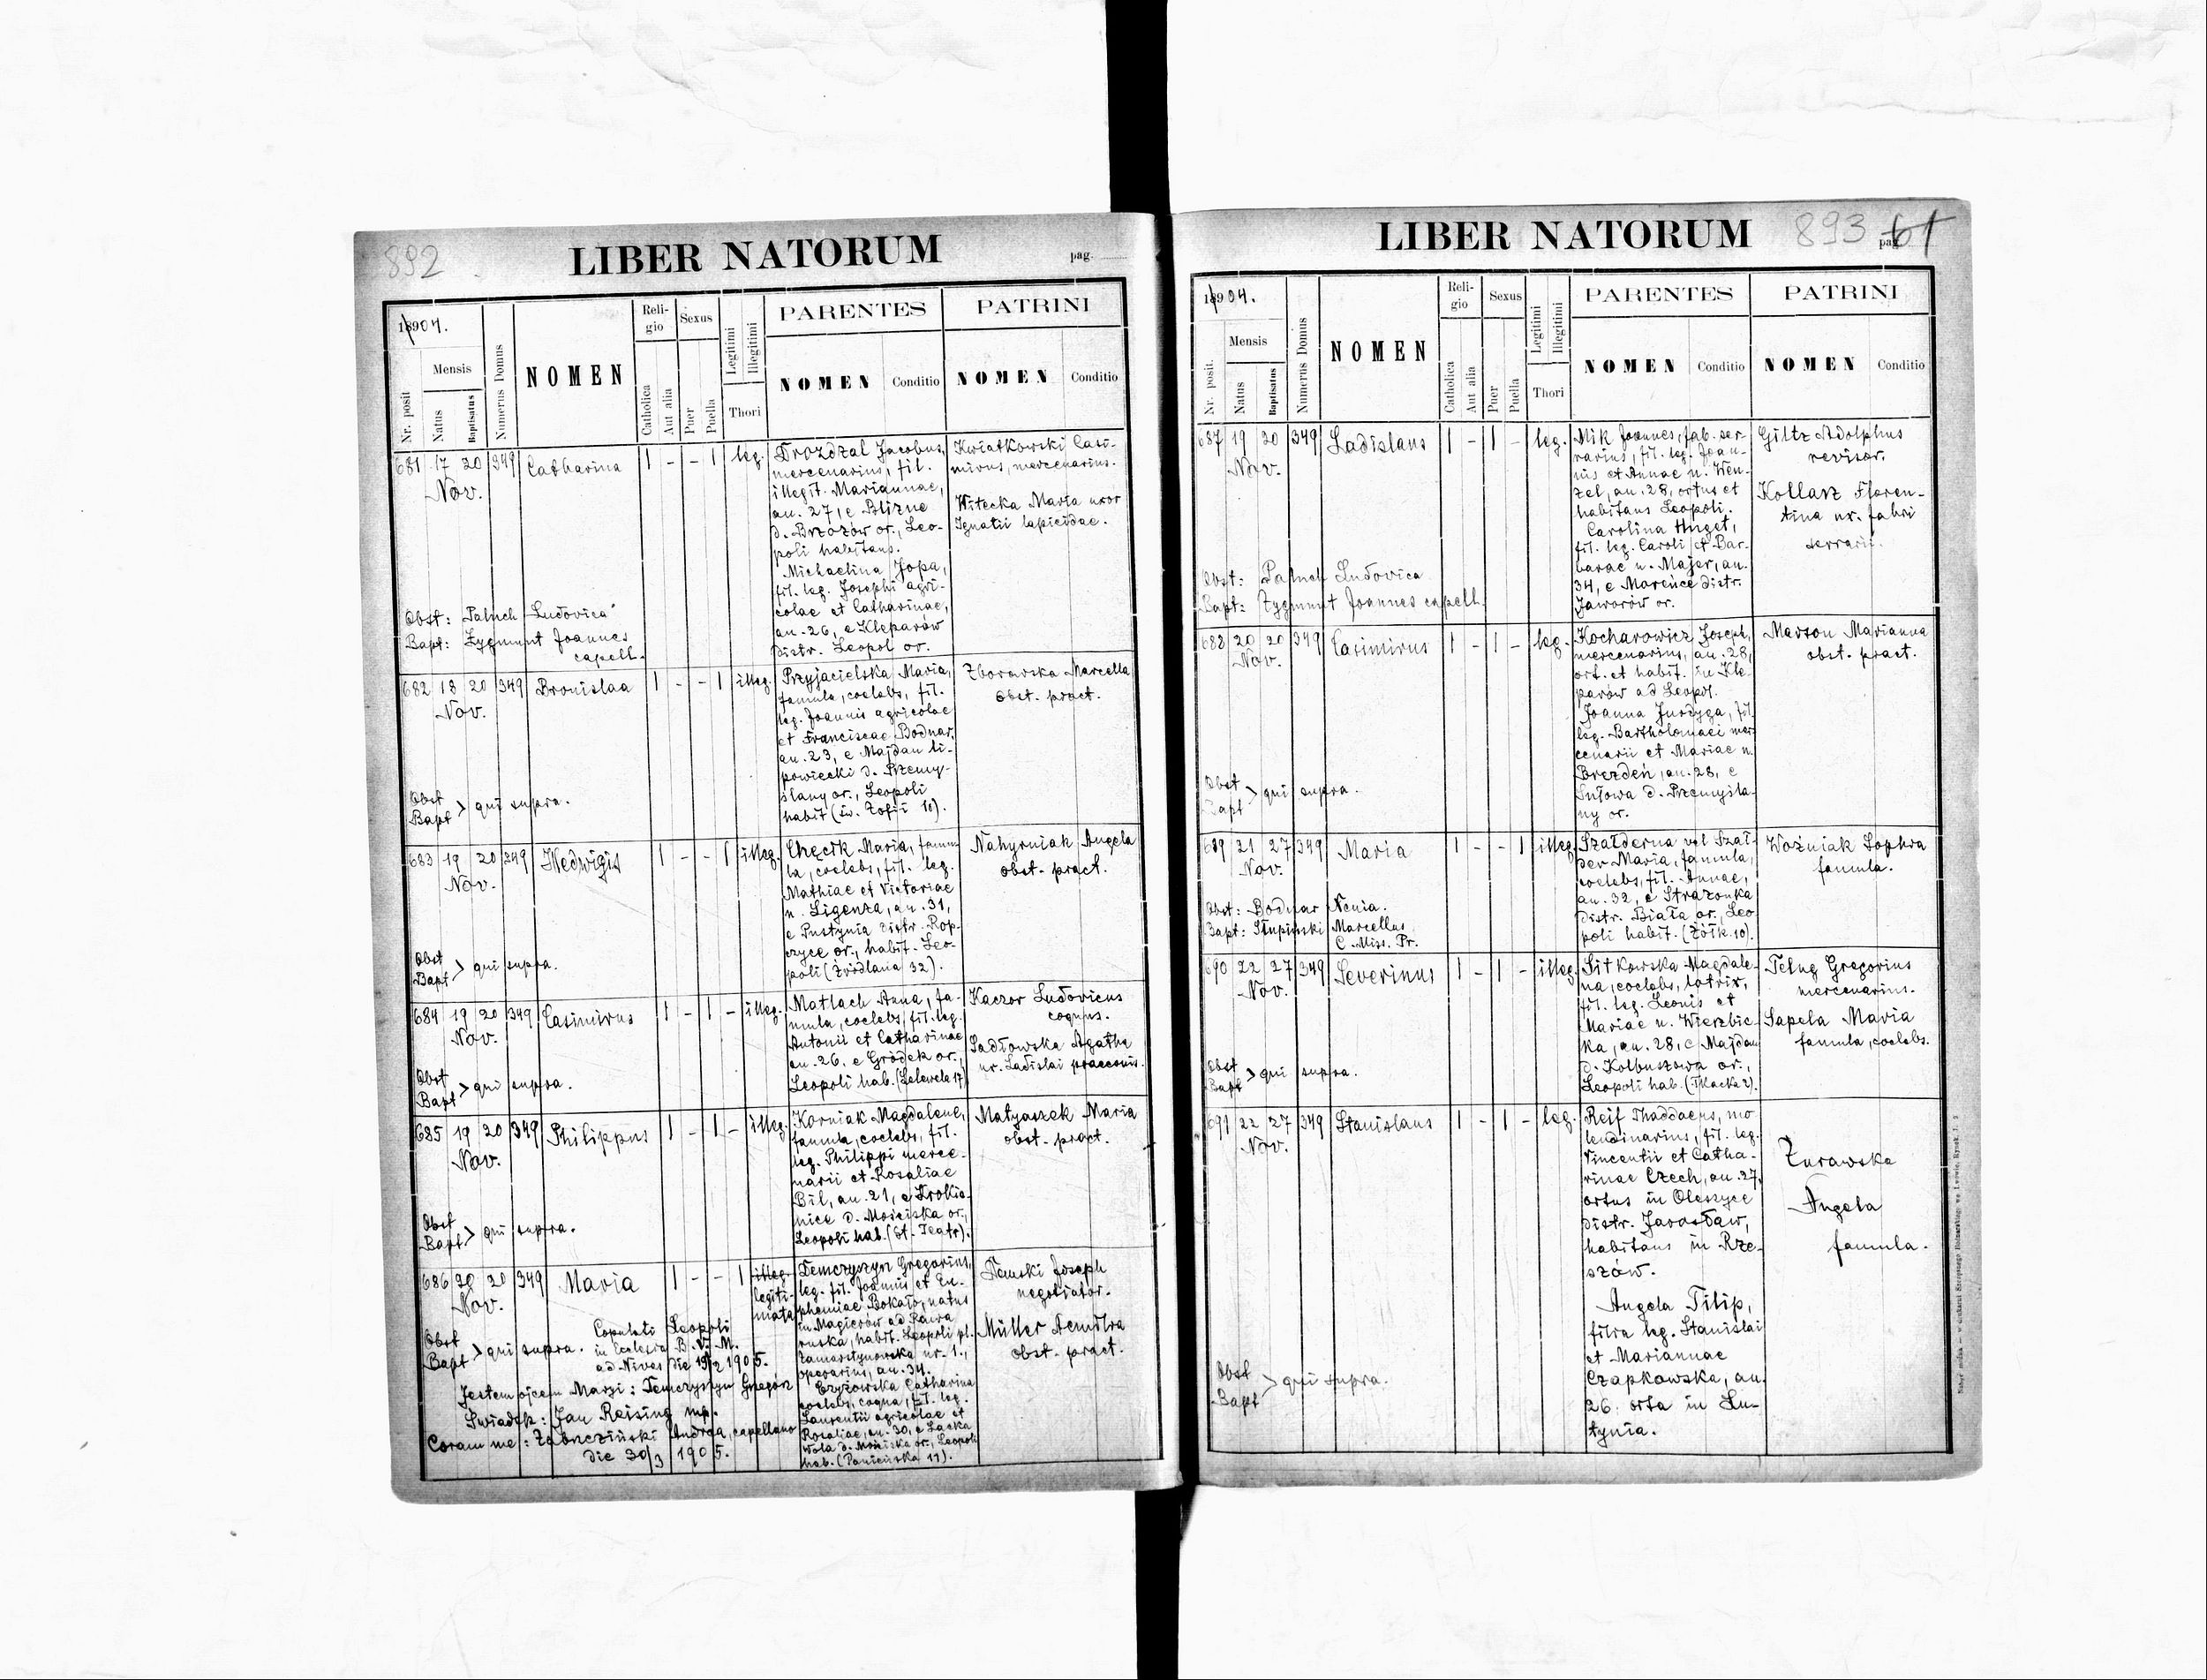 892
LIBER NATORUM
pag.
1904.
Nr. posit
Mensis
Natus
Baptisatus
Numerus Domus
NOMEN
Religio
Catholica
Aut alia
Sexus
Puer
Puella
Legitimi
Illegitimi
Thori
PARENTES
NOMEN
Conditio
PATRINI
NOMEN
Conditio
681 17 20 349 Catharina 1 - - 1 leg.
Nov.
Drozdzal Jacobus,
mercenarius, fil.
illegit. Mariannae,
an. 27, e Blizne
d. Brzozów or., Leo-
poli habitans.
Michaelina Jopa,
fil. leg. Josephi agri-
colae et Catharinae,
an. 26, e Kleparów
distr. Leopol or.
Kwiatkowski Casi-
mirus, mercenarius.
Witecka Maria uxor
Ignatii lapicidae.
Obst: Paluch Ludovica
Bapt: Zygmunt Joannes
capell.
682 18 20 349 Bronislaa 1 - - 1 illeg.
Nov.
Przyjacielska Maria,
famula, coelebs, fil.
leg. Joannis agricolae
et Franciscae Bodnar,
an. 23, e Majdan li-
powiecki d. Przemy-
ślany or., Leopoli
habit (św. Zofii 10).
Zborowska Marcella
obst. pract.
Obst
Bapt > qui supra.
683 19 20 349 Hedwigis 1 - - 1 illeg.
Nov.
Chęcik Maria, famu-
la, coelebs, fil. leg.
Mathiae et Victoriae
n. Ligenza, an. 31,
e Pustynia distr. Rop-
czyce or., habit. Leo-
poli (Źródlana 32).
Nahyrniak Angela
obst. pract.
Obst
Bapt > qui supra.
684 19 20 349 Casimirus 1 - 1 - illeg.
Nov.
Matlach Anna, fa-
mula, coelebs, fil. leg.
Antonii et Catharinae
an. 26, e Gródek or.,
Leopoli hab. (Lelewela 17)
Kaczor Ludovicus
coquus.
Sadłowska Agatha
ux. Ladislai praeconis.
Obst
Bapt > qui supra.
685 19 20 349 Philippus 1 - 1 - illeg.
Nov.
Korniak Magdalena,
famula, coelebs, fil.
leg. Philippi merce-
narii et Rosaliae
Bil, an. 21, e
d. Mościska or.,
Leopoli hab. (St. Teatr).
Matyaszek Maria
obst. pract.
Obst
Bapt > qui supra.
686 20 20 349 Maria 1 - - 1 illeg.
legiti-
mata
Nov.
Temczyszyn Gregorius,
leg. fil. Joannis et Eu-
phemiae Bokało, natus
in Magierów ad Rawa
ruska, habit. Leopoli pl.
Zamarstynowska nr. 1.,
operarius, an. 34.
Czyżowska Catharina
coelebs, coqua, fil. leg.
Laurentii agricolae et
Rosaliae, an. 30, e Lacka
Wola d. Mościska or., Leopoli
hab. (Panieńska 11).
Joseph
negotiator.
Müller
obst. pract.
Obst
Bapt > qui supra.
Copulati Leopoli
in Ecclesia B. V. M.
ad Nives die 19/2 1905.
Jestem ojcem Maryi: Temczyszyn Grzegórz
Świadek: Jan Reising mp.
Coram me: Andrea, capellano
die 30/3 1905.
LIBER NATORUM
893
pag. 61
1904.
Nr. posit.
Mensis
Natus
Baptisatus
Numerus Domus
NOMEN
Religio
Catholica
Aut alia
Sexus
Puer
Puella
Legitimi
Illegitimi
Thori
PARENTES
NOMEN
Conditio
PATRINI
NOMEN
Conditio
687 19 20 349 Ladislaus 1 - 1 - leg.
Nov.
Mik Joannes, fab. ser-
rarius, fil. leg. Joan-
nis et Annae n. Wen-
zel, an. 28, ortus et
habitans Leopoli.
Carolina Huget,
fil. leg. Caroli et Bar-
barae n. Majer, an.
34, e distr.
Jaworów or.
Giltz Adolphus
revisor.
Kollarz Floren-
tina ux. fabri
serrarii.
Obst: Paluch Ludovica
Bapt: Zygmunt Joannes capell.
688 20 20 349 Casimirus 1 - 1 - leg.
Nov.
Kocharowicz Joseph,
mercenarius, an. 28,
ort. et habit. in Kle-
parów ad Leopol.
Joanna Jurdyga, fil.
leg. Bartholomaei mer-
cenarii et Mariae n.
Brezdeń, an. 28, e
d. Przemyśla-
ny or.
Marson Marianna
obst. pract.
Obst
Bapt > qui supra.
689 21 27 349 Maria 1 - - 1 illeg.
Nov.
Szałderna vel Szał-
der Maria, famula,
coelebs, fil. Annae,
an. 32, e Strazonka
distr. Biała or., Leo
poli habit. (Żółk. 10).
Woźniak Sophia
famula.
Obst: Bodnar Xenia.
Bapt: Słupiński Marcellus
C. Miss. Pr.
690 22 27 349 Severinus 1 - 1 - illeg.
Nov.
Sitkowska Magdale-
na, coelebs, lotrix,
fil. leg. Leonis et
Mariae n. Wierzbic
ka, an. 28, e Majdan
d. Kolbuszowa or.,
Leopoli hab. (Tkacka 2).
Pełng Gregorius
mercenarius.
Sapela Maria
famula, coelebs.
Obst
Bapt > qui supra.
691 22 27 349 Stanislaus 1 - 1 - leg.
Nov.
Reif Thaddaeus, mo
lendinarius, fil. leg.
Vincentii et Catha-
rinae Czech, an. 27,
ortus in Oleszyce
distr. Jarosław,
habitans in Rze-
szów.
Angela Filip,
filia leg. Stanislai
et Mariannae
Czapkowska, an.
26. orta in Lu-
tynia.
Żurawska
Angela
famula.
Obst
Bapt > qui supra.